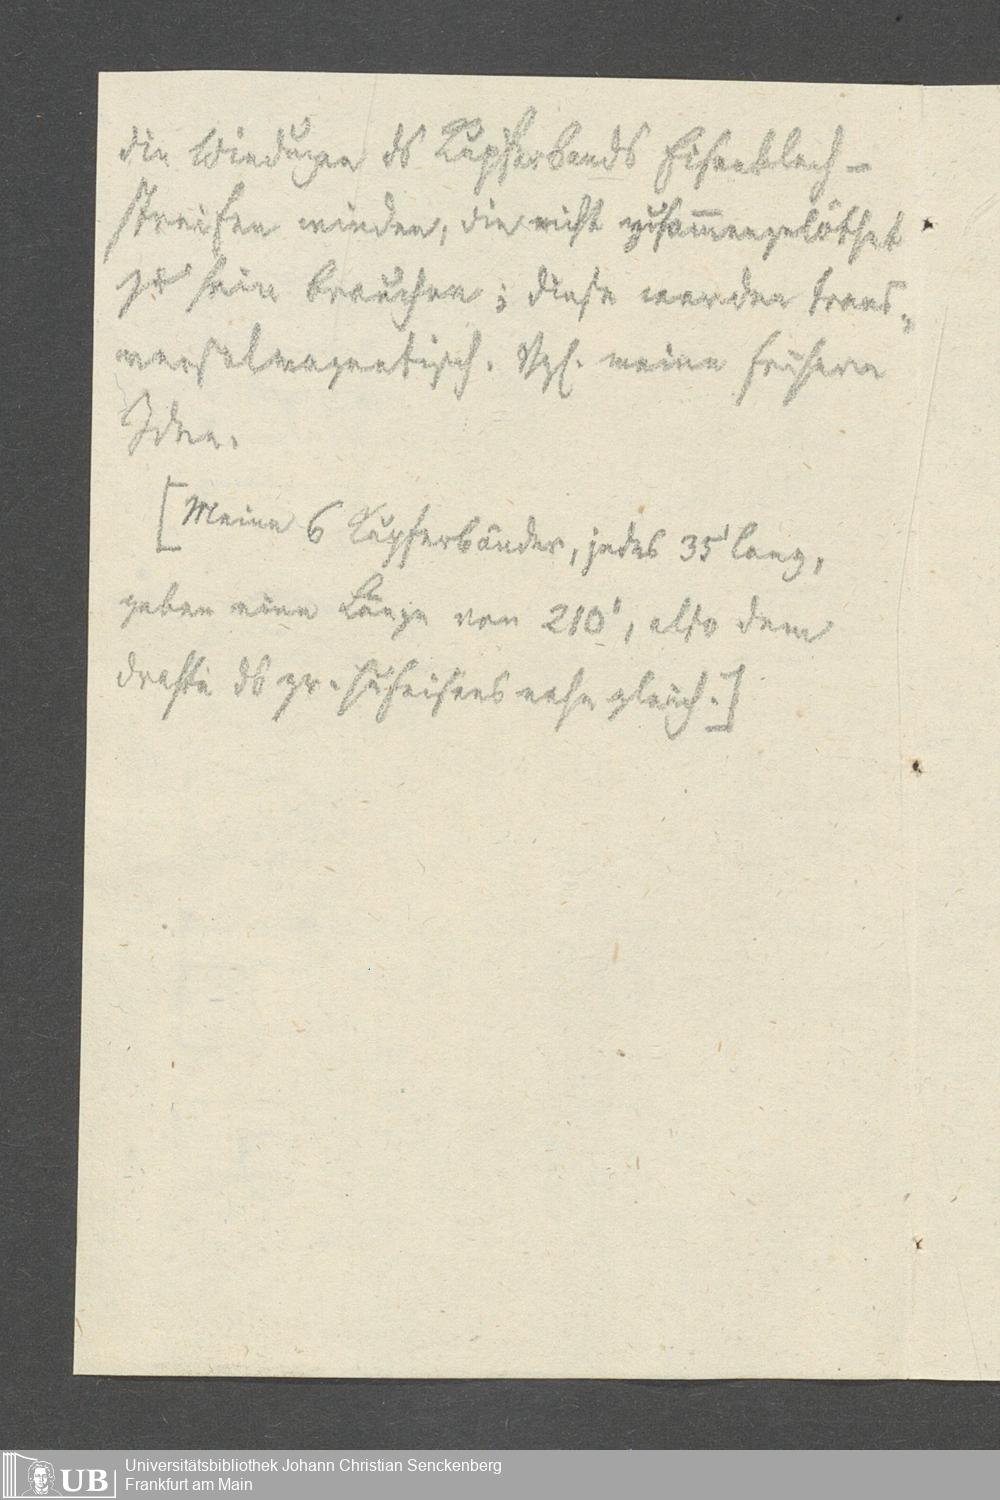 die Windungen ds Kupferbands Eisenblech-
streifen winden, die nicht zusam̅engelöthet
zu sein brauchen; diese werden trans-
versalmagnetisch. Vgl. meine frühern
Ideen.
[Meine 6 Kupferbänder, jedes 35' lang,
geben eine Länge von 210', also dem
Drahte ds gr. Hufeisens nahe gleich.]
UB
Universitätsbibliothek Johann Christian Senckenberg
Frankfurt am Main